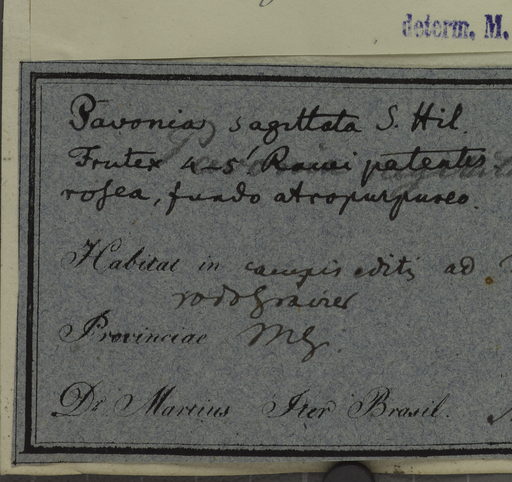 determ. M.
Pavonia sagittata S. Hil.
Frutex 4-5' Rami patentes
rosea, fundo atropurpureo.
Habitat in campis editis ad
Provinciae MG.
Dr. Martius Iter Brasil.